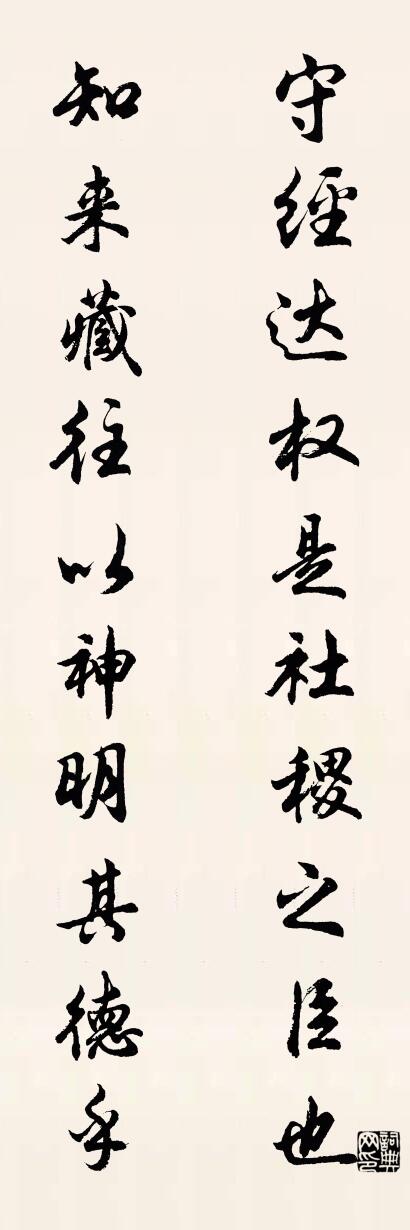 守经达权是社稷之臣也
知来藏往以神明其德乎
词典网印